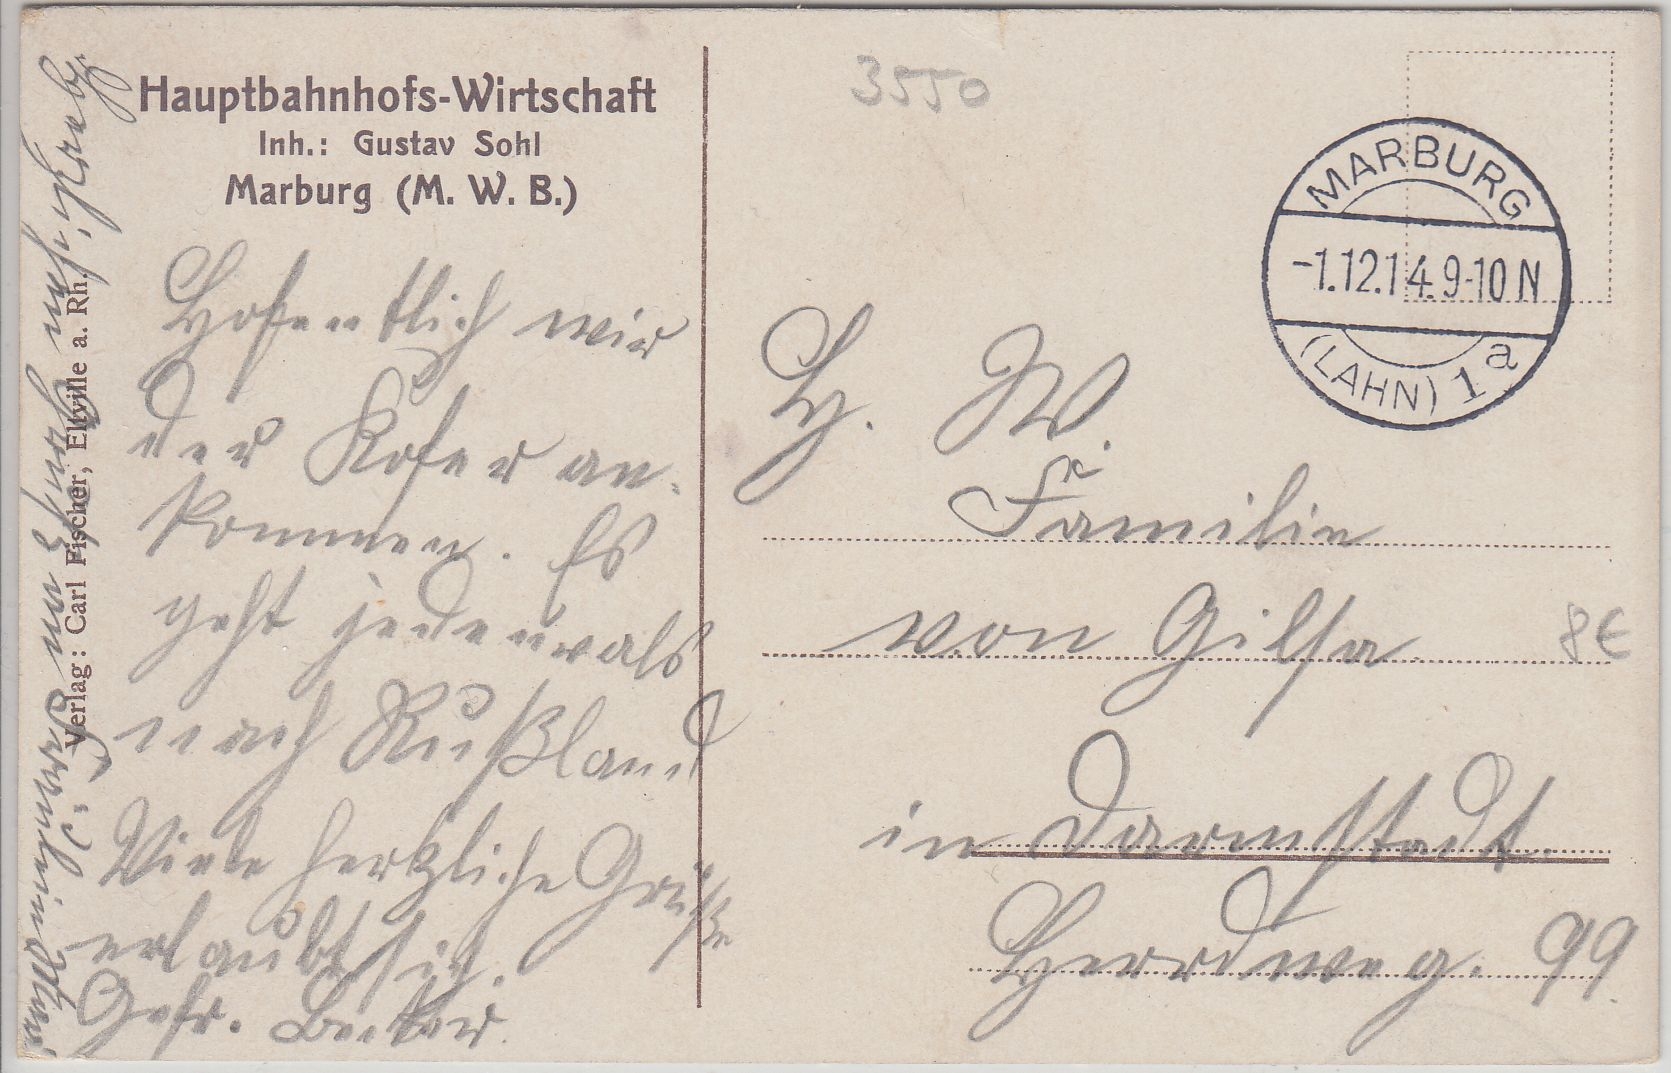 Hauptbahnhofs-Wirtschaft
Inh.: Gustav Sohl
Marburg (M. W. B.)
Verlag: Carl Fischer, Eltville a. Rh.
Hofentlich wir
der Kofer an-
kommen. Es
geht jedenvals
nach Rußland
Viele herzliche Grüße
erlaubt sich
Gefr.
3550
MARBURG
-1.12.14.9-10 N
(LAHN) 1 a
Familie
von Gilsa
in Darmstadt.
Herdweg. 99
8€